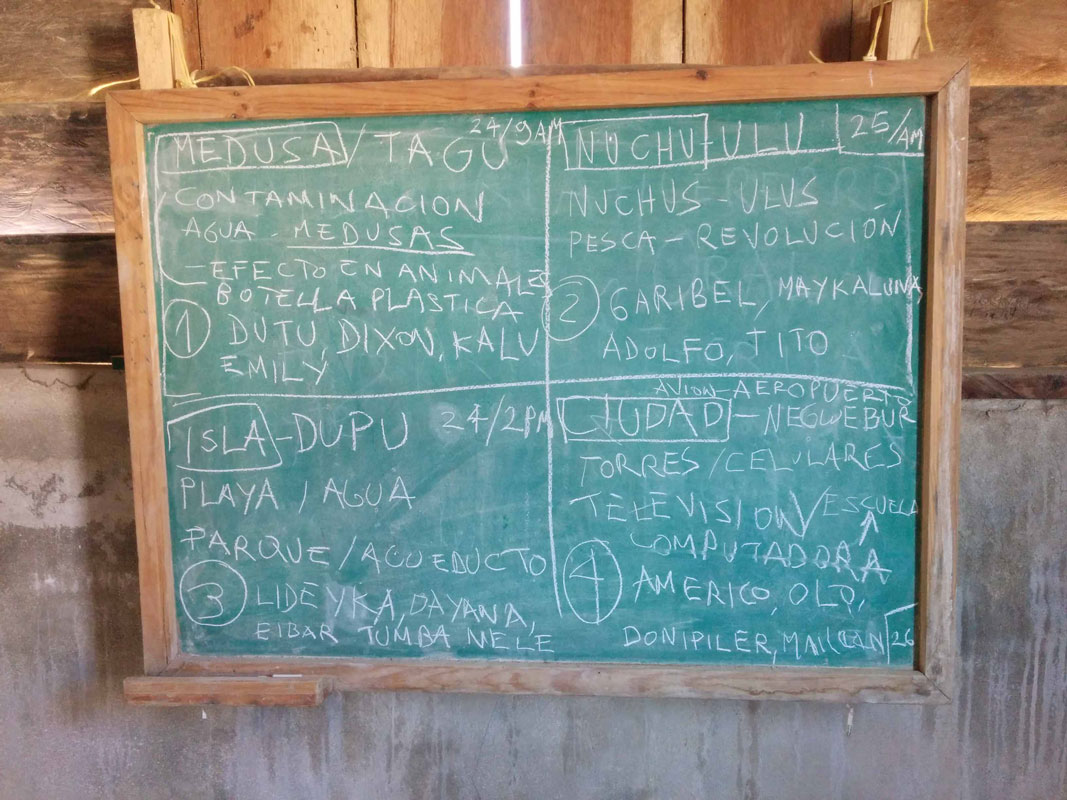 MEDUSA / TAGU 24/9AM
CONTAMINACION
AGUA - MEDUSAS
- EFECTO EN ANIMALES
BOTELLA PLASTICA
1 DUTU, DIXON, KALU
EMILY
NUCHU-ULU 25/AM
NUCHUS - ULUS
PESCA - REVOLUCIÓN
2 GARIBEL, MAYKALUNA
ADOLFO, TITO
ISLA-DUPU 24/2PM
PLAYA / AGUA
PARQUE / ACUEDUCTO
3 LIDEYKA, DAYANA,
EIBAR TUMBA NELE
AVION-AEROPUERTO
CIUDAD - NEGWEBUR
TORRES / CELULARES
TELEVISION / ESCUELA
COMPUTADORA
4 AMERICO, OLO,
DONIPILER, 26